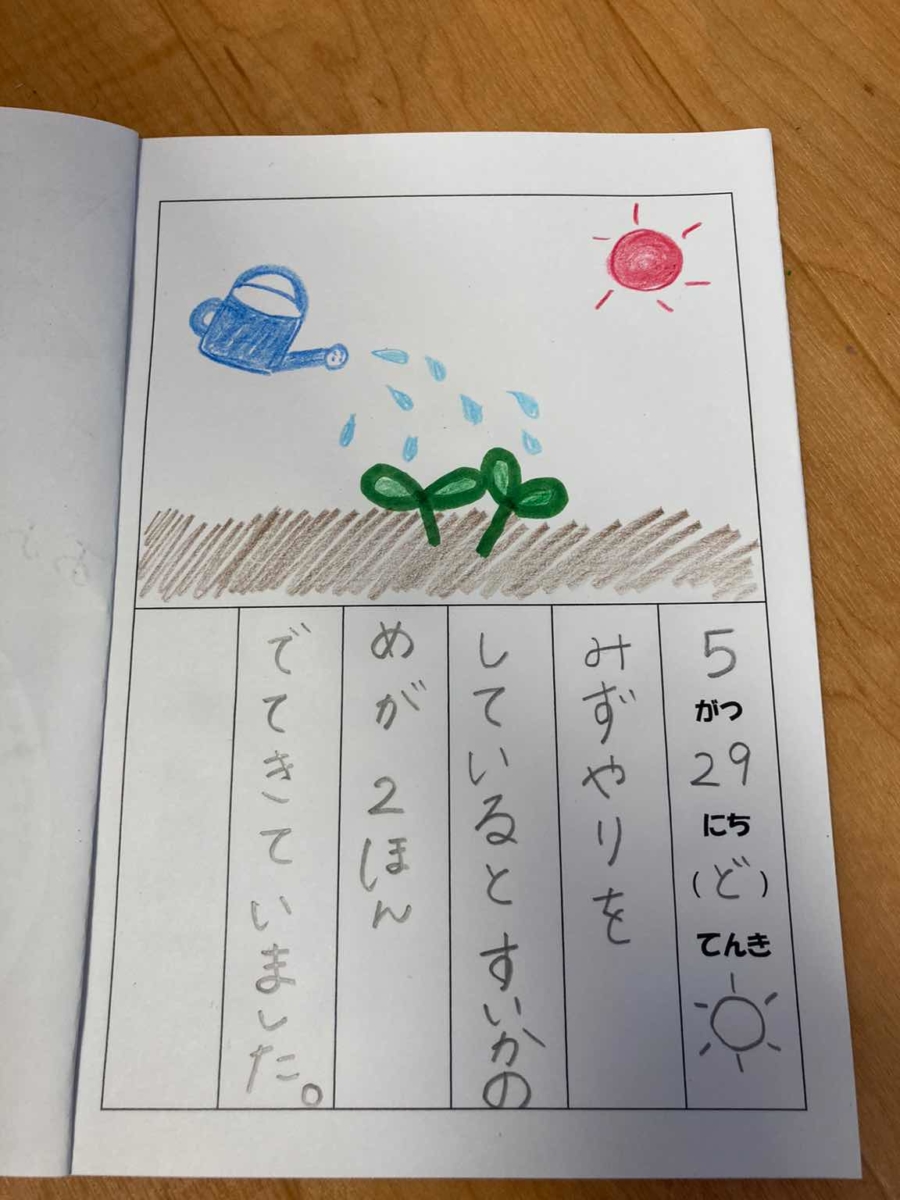 5がつ29にち(ど)てんき
みずやりを
していると すいかの
めが 2ほん
でてきていました。